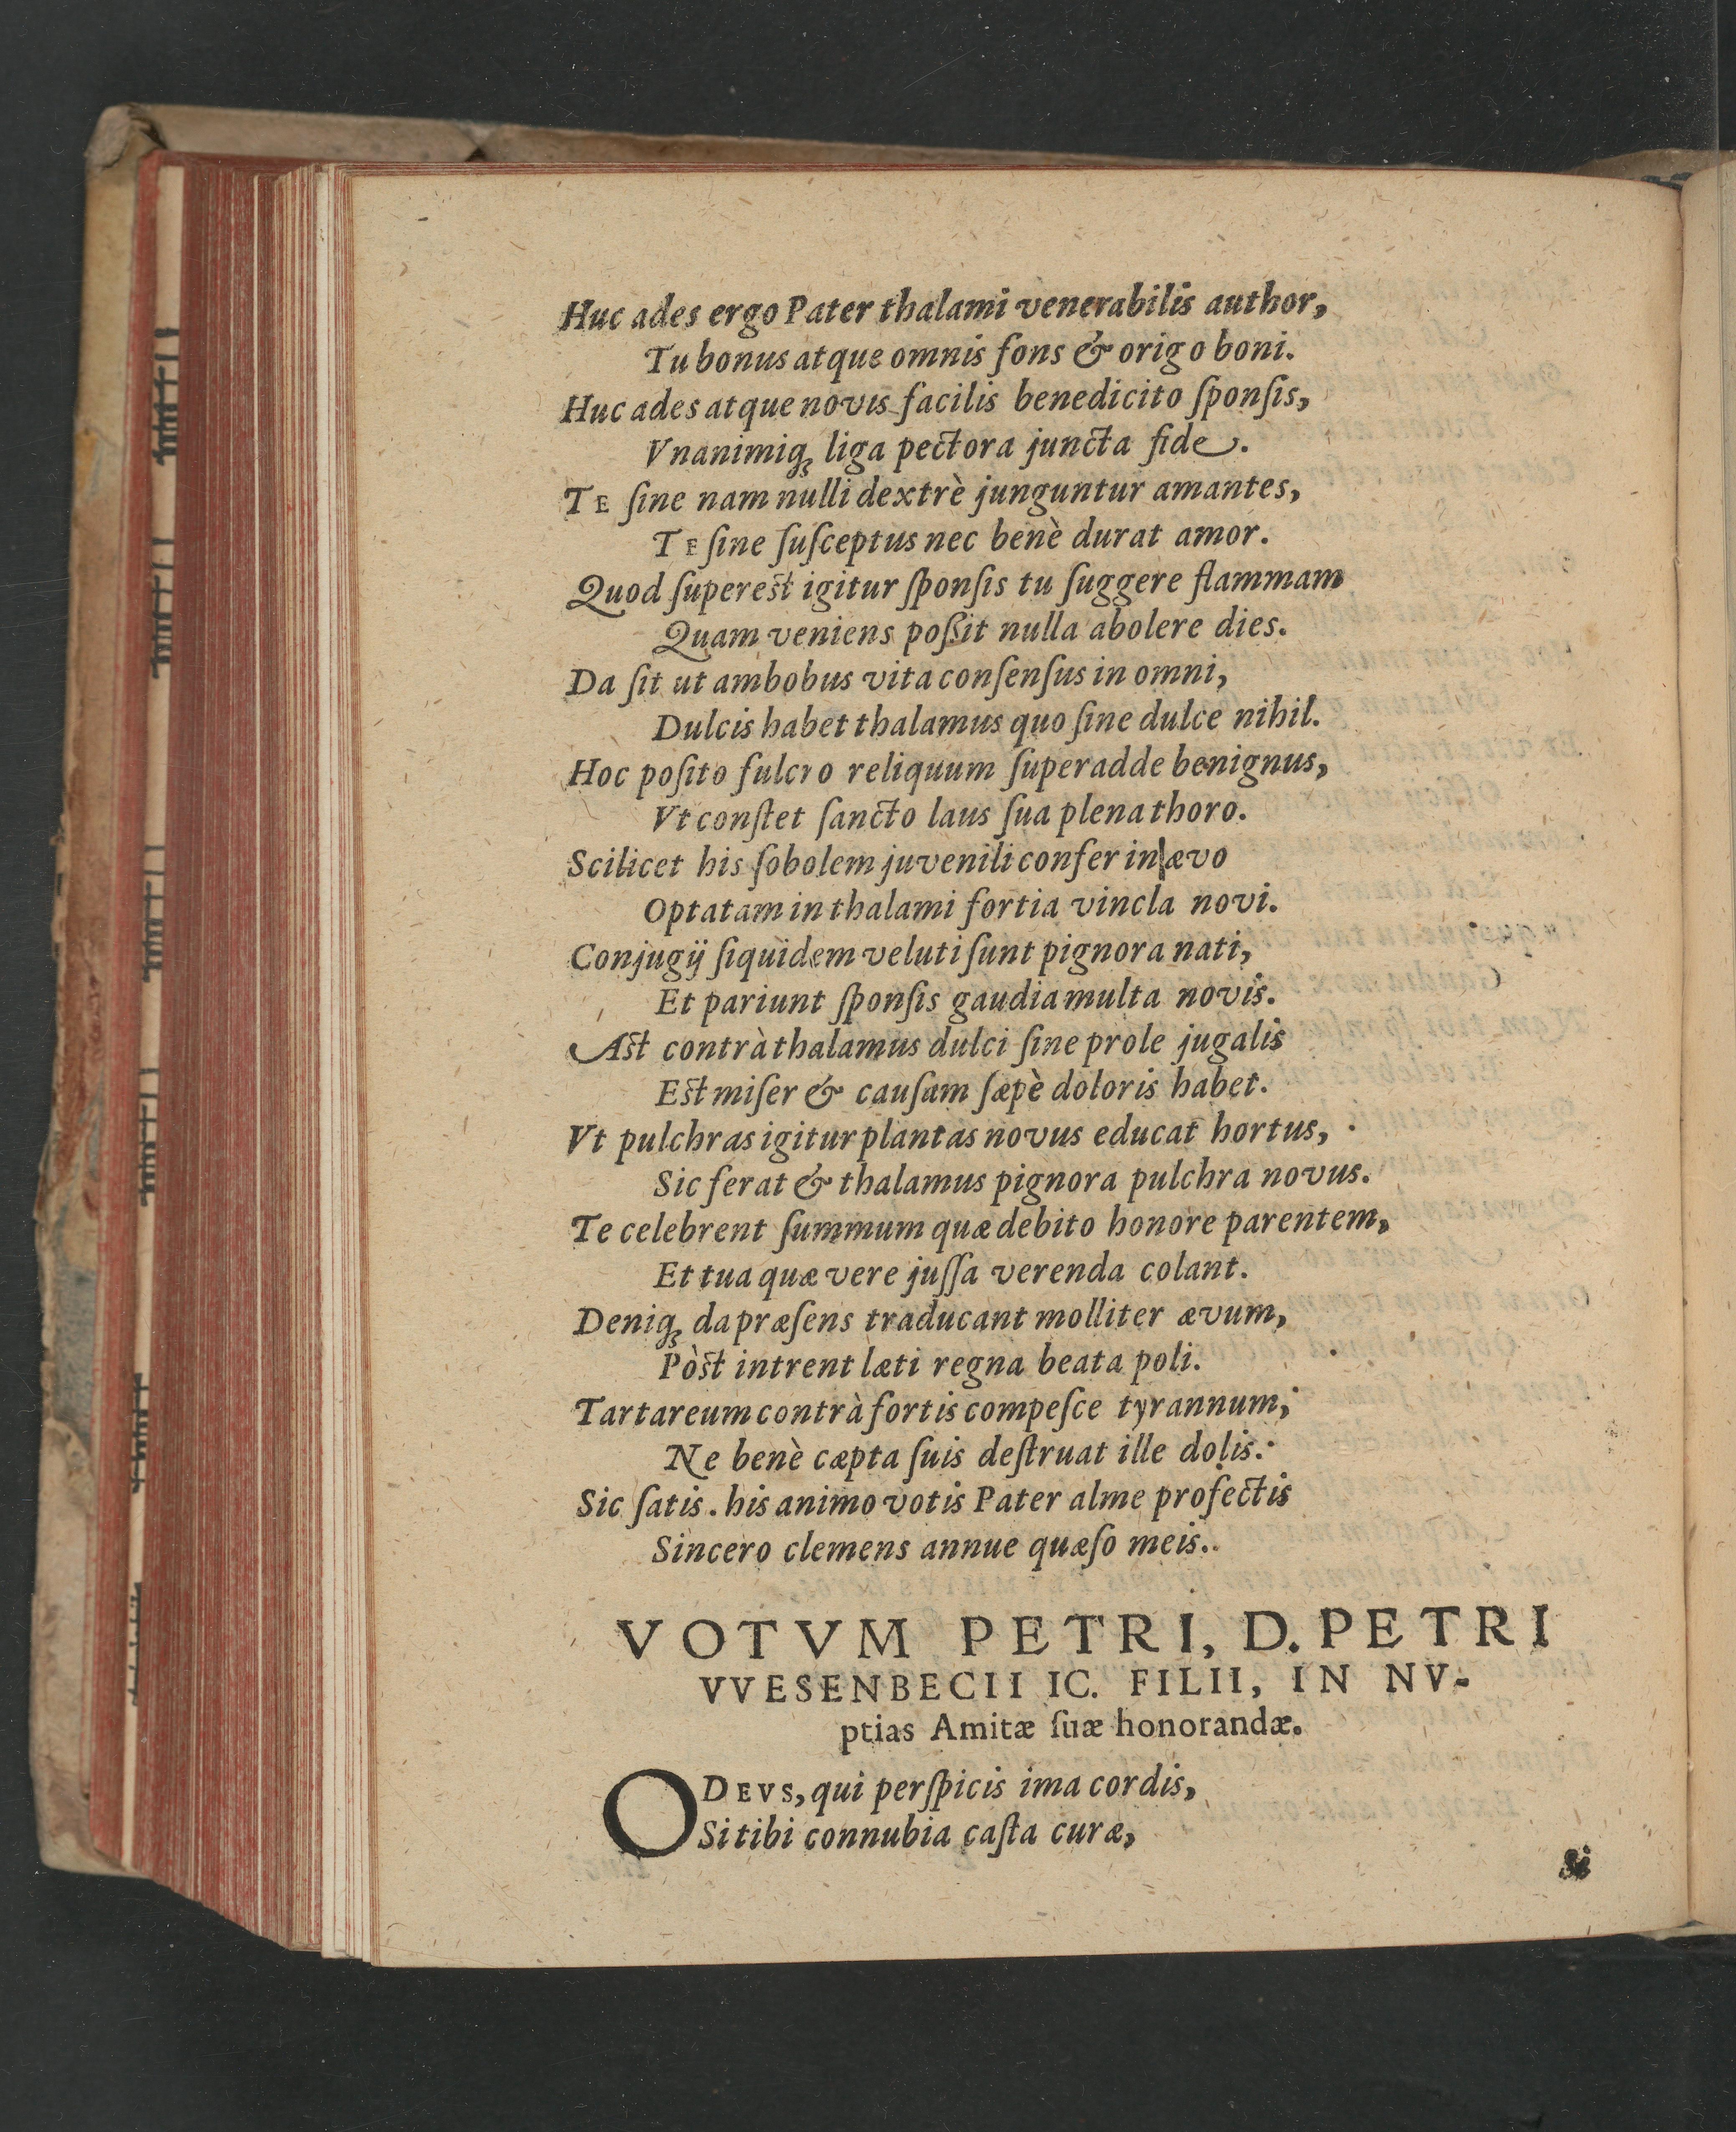 Huc ades ergo Pater thalami venerabilis author,
Tu bonus atque omnis fons & origo boni.
Huc ades atque novis facilis benedicito ſponſis,
Vnanimiq́ꝫ liga pectora juncta fide.
TE ſine nam nulli dextrè junguntur amantes,
TE ſine ſuſceptus nec benè durat amor.
Quod ſupereſt igitur ſponſis tu ſuggere flammam
Quam veniens poßit nulla abolere dies.
Da ſit ut ambobus vita conſenſus in omni,
Dulcis habet thalamus quo ſine dulce nihil.
Hoc poſito fulcro reliquum ſuperadde benignus,
Vt conſtet ſancto laus ſua plena thoro.
Scilicet his ſobolem juvenili confer in ævo
Optatam in thalami fortia vincla novi.
Conjugij ſiquidem veluti ſunt pignora nati,
Et pariunt ſponſis gaudia multa novis.
Aſt contrà thalamus dulci ſine prole jugalis
Eſt miſer & cauſam ſæpè doloris habet.
Vt pulchras igitur plantas novus educat hortus,
Sic ferat & thalamus pignora pulchra novus.
Te celebrent ſummum quæ debito honore parentem,
Et tua quæ vere juſſa verenda colant.
Deniqꝫ da præſens traducant molliter ævum,
Pòſt intrent læti regna beata poli.
Tartareum contrà fortis compeſce tyrannum,
Ne benè cæpta ſuis deſtruat ille dolis.
Sic ſatis. his animo votis Pater alme profectis
Sincero clemens annue quæſo meis.
VOTVM PETRI, D. PETRI
VVESENBECII IC. FILII, IN NV-
ptias Amitæ ſuæ honorandæ.
O DEVS, qui perſpicis ima cordis,
Si tibi connubia caſta curæ,
Si